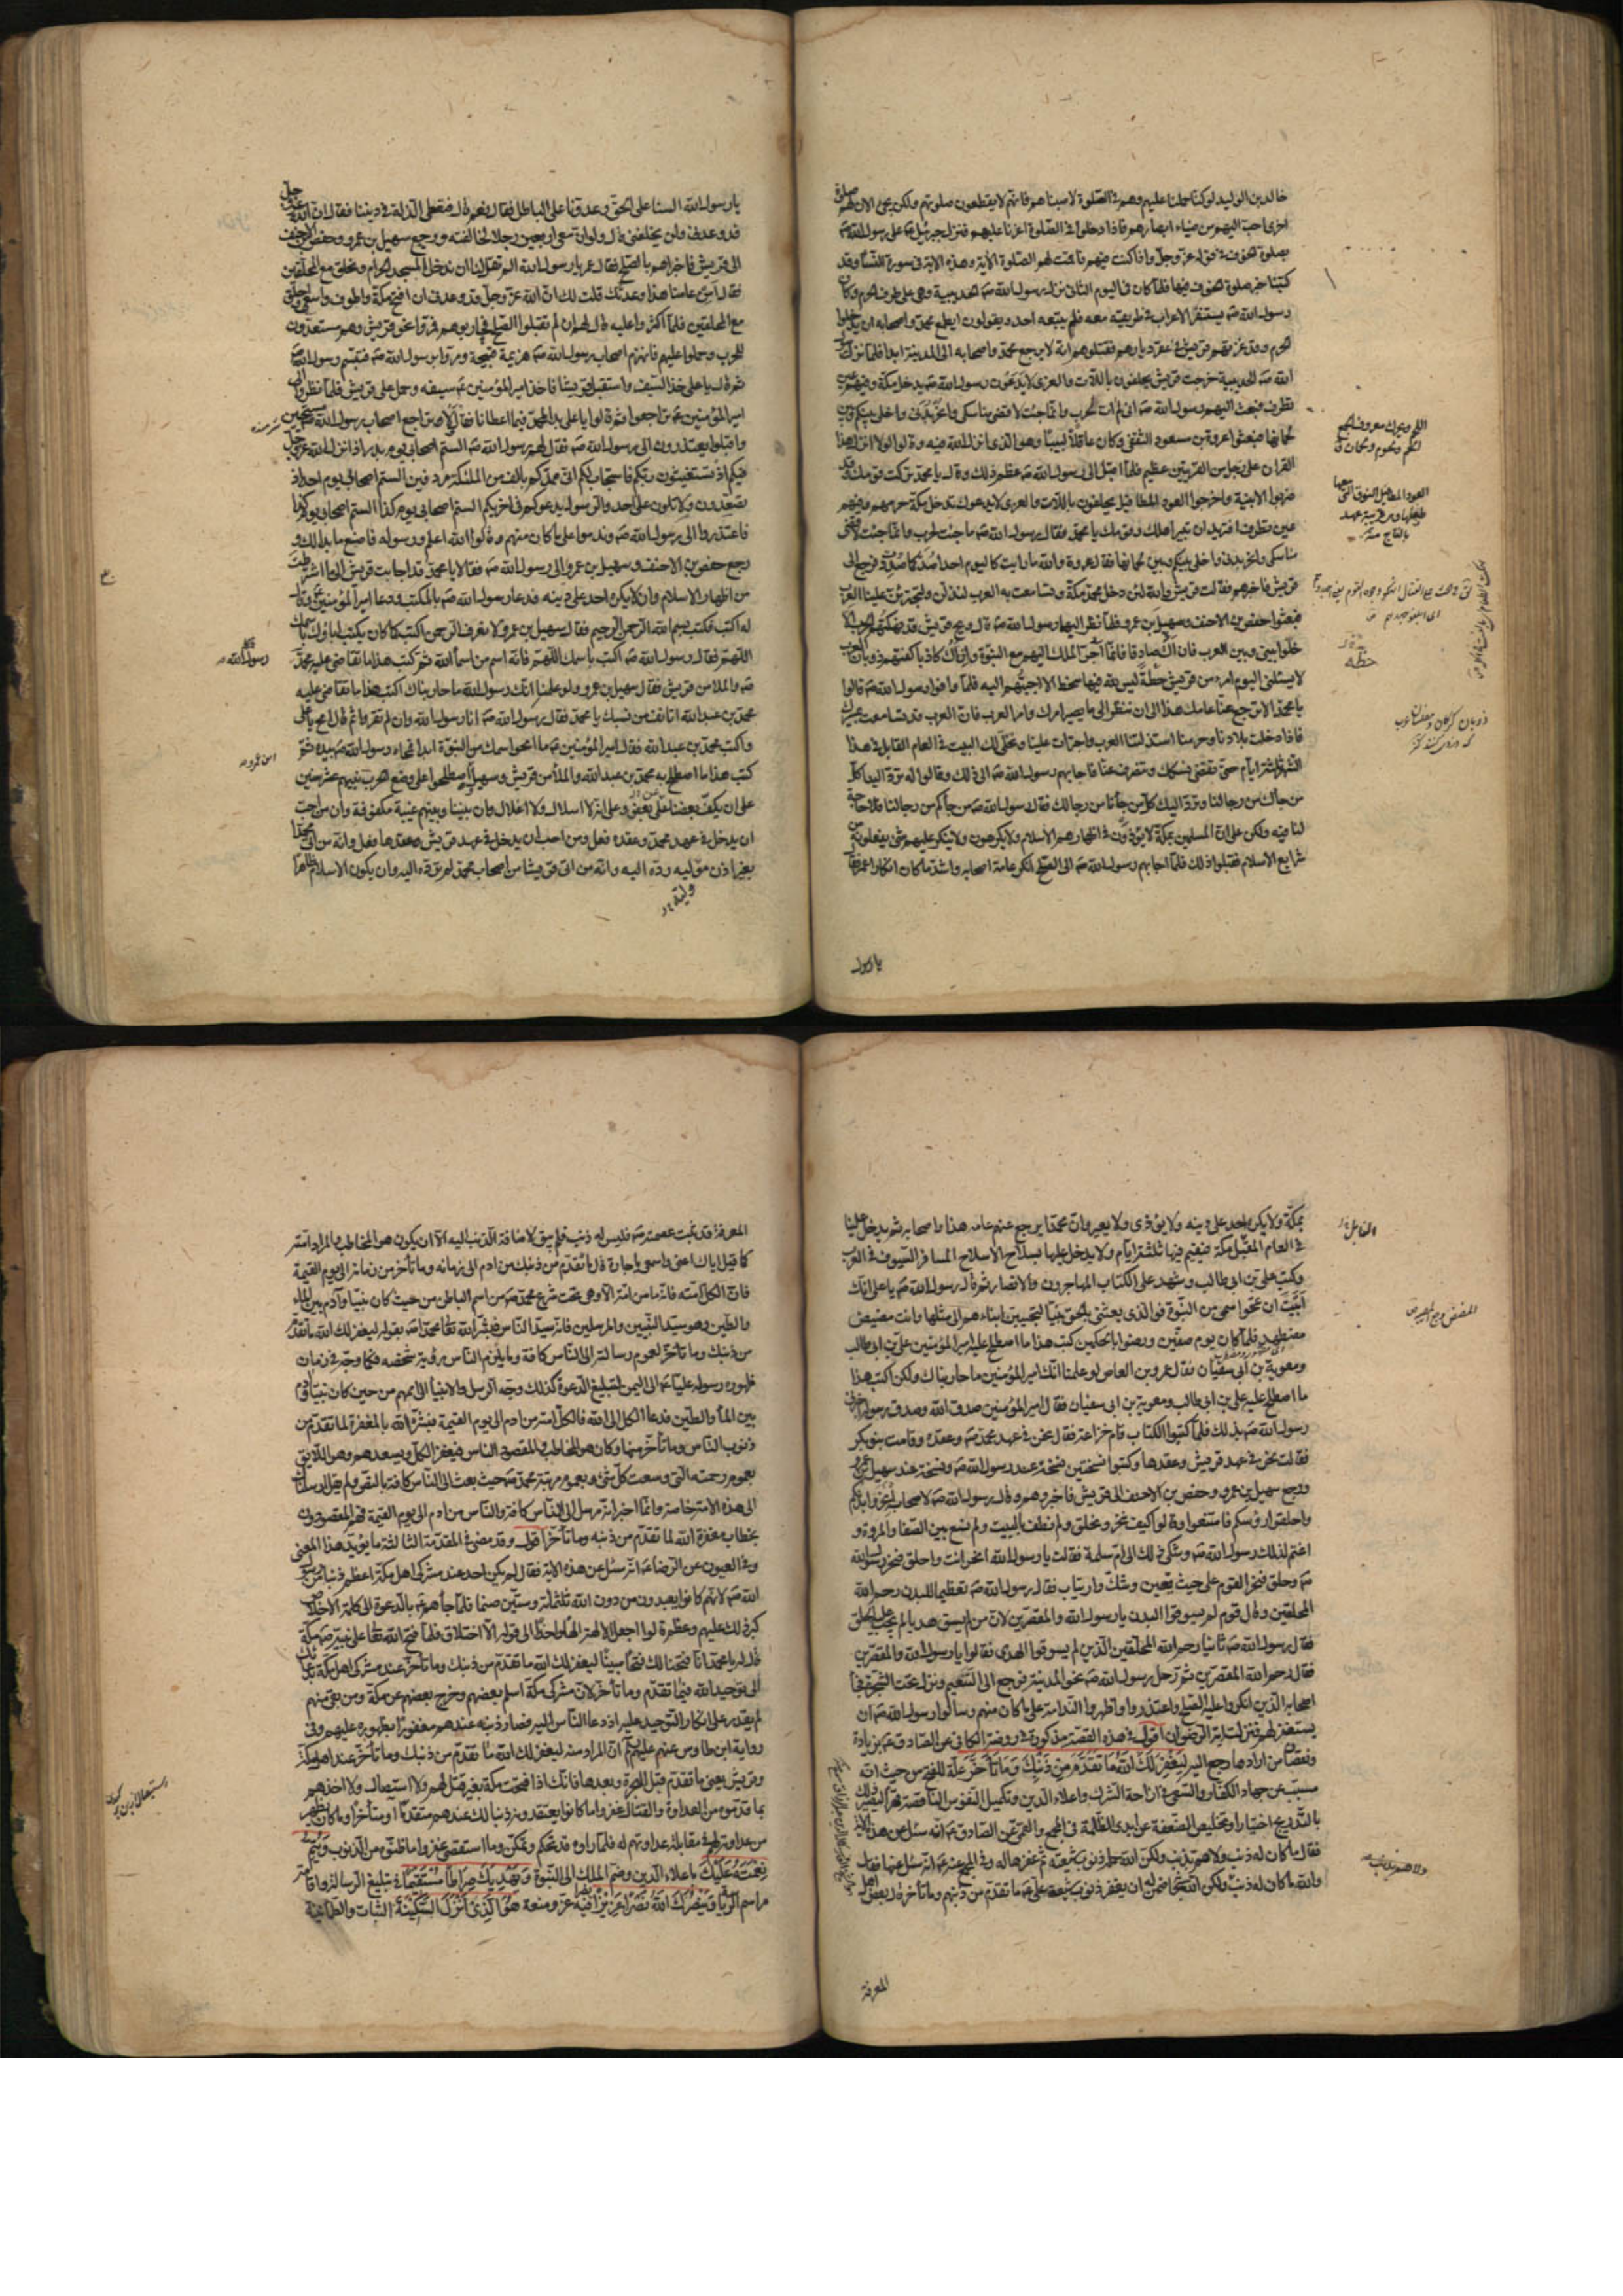 خالد بن الوليد لو كنا حملنا عليهم وهم في الصلوة لاصبناهم فانهم لا يقطعون صلوتهم ولكن يجئ الان لهم صلوة
اخرى احب اليهم من ضياء ابصارهم فاذا دخلوا في الصلوة اغرنا عليهم فنزل جبرئيل على رسول الله
بصلوة الخوف في قوله عز وجل واذا كنت فيهم فاقمت لهم الصلوة الآية وهذه الاية في سورة النساء وقد
كتبنا خبر صلوة الخوف فيها فلما كان في اليوم الثاني نزل رسول الله صه الحديبية وهي على طرف الحرم وكان
رسول الله صه يستنفر الاعراب في طريقه معه فلم يتبعه احد ويقولون ايطمع محمد واصحابه ان يدخلوا
الحرم وقد غزتهم قريش في عقر ديارهم فقتلوهم انه لا يرجع محمد واصحابه الى المدينة ابدا فلما نزل رسول
الله صه الحديبية خرجت قريش يحلفون باللات والعزى لا يدعون رسول الله صه يدخل مكة وفيهم عين
تطرف فبعث اليهم رسول الله صه انى لم ات لحرب وانما جئت لاقضى مناسكى وانحر بدنى واخلى بينكم وبين
لحمانها فبعثوا عروة بن مسعود الثقفى وكان عاقلا لبيبا وهو الذى انزل الله فيه وقالوا لولا انزل هذا
القران على رجل من القريتين عظيم فلما اقبل الى رسول الله صه عظم ذلك وقال يا محمد تركت قومك وقد
ضربوا الابنية واخرجوا العود المطافيل يحلفون باللات والعزى لا يدعوك تدخل مكة حرمهم وفيهم
عين تطرف افتريد ان تبير اهلك وقومك يا محمد فقال رسول الله صه ما جئت لحرب وانما جئت لاقضى
مناسكى وانحر بدنى واخلى بينكم وبين لحمانها فقال عروة والله ما رايت كاليوم احدا صد كما صددت فرجع الى
قريش فاخبرهم فقالت قريش والله لئن دخل محمد مكة وتسامعت به العرب لنذلن ولتجترئن علينا العرب
فبعثوا حفص بن الاحنف وسهيل بن عمرو فلما نظر اليهما رسول الله صه قال ويح قريش قد نهكتهم الحرب الا
خلوا بينى وبين العرب فان اك صادقا فانما اجر الملك اليهم مع النبوة وان اك كاذبا كفتهم ذوبان العرب
لا يسئلنى اليوم امرء من قريش خطة ليس لله فيها سخط الا اجبتهم اليه فلما وافوا رسول الله صه قالوا
يا محمد الا ترجع عنا عامك هذا الى ان ننظر الى ما يصير امرك وامر العرب فان العرب قد تسامعت بمسيرك
فاذا دخلت بلادنا وحرمنا استذلتنا العرب واجترات علينا ونخلى لك البيت في العام القابل في هذا
الشهر ثلثة ايام حتى تقضى نسكك وتنصرف عنا فاجابهم رسول الله صه الى ذلك وقالوا له ترد الينا كل
من جاءك من رجالنا ونرد اليك كل من جاءنا من رجالك فقال رسول الله صه من جاءكم من رجالنا فلا حاجة
لنا فيه ولكن على ان المسلمين بمكة لا يؤذون في اظهارهم الاسلام ولا يكرهون ولا ينكر عليهم شئ يفعلونه من
شرايع الاسلام فقبلوا ذلك فلما اجابهم رسول الله صه الى الصلح انكر عامة اصحابه واشد ما كان انكارا عمر فقال
يا رسول
خطة
يا رسول الله السنا على الحق وعدونا على الباطل فقال نعم قال فنعطى الذلة في ديننا فقال ان الله عز وجل
قد وعدنى ولن يخلفنى قال ولو ان معى اربعين رجلا لخالفته ورجع سهيل بن عمرو وحفص بن الاحنف
الى قريش فاخبراهم بالصلح فقال عمر يا رسول الله الم تقل لنا ان ندخل المسجد الحرام ونحلق مع المحلقين
فقال امن عامنا هذا وعدتك قلت لك ان الله عز وجل قد وعدنى ان افتح مكة واطوف واسعى واحلق
مع المحلقين فلما اكثروا عليه قال لهم ان لم تقبلوا الصلح فحاربوهم فمروا نحو قريش وهم مستعدون
للحرب وحملوا عليهم فانهزم اصحاب رسول الله صه هزيمة قبيحة ومروا برسول الله صه فتبسم رسول الله صه
ثم قال يا على خذ السيف واستقبل قريشا فاخذ امير المؤمنين سيفه وحمل على قريش فلما نظروا الى
امير المؤمنين تراجعوا ثم قالوا يا على بدا لمحمد فيما اعطانا فقال لا وتراجع اصحاب رسول الله صه مستحيين
واقبلوا يعتذرون الى رسول الله صه فقال لهم رسول الله صه الستم اصحابى يوم بدر اذ انزل الله عز وجل
فيكم اذ تستغيثون ربكم فاستجاب لكم انى ممدكم بالف من الملئكة مردفين الستم اصحابى يوم احد اذ
تصعدون ولا تلون على احد والرسول يدعوكم في اخريكم الستم اصحابى يوم كذا الستم اصحابى يوم كذا
فاعتذروا الى رسول الله صه وندموا على ما كان منهم وقالوا الله اعلم ورسوله فاصنع ما بدا لك و
رجع حفص بن الاحنف وسهيل بن عمرو الى رسول الله صه فقالا يا محمد قد اجابت قريش الى ما اشترطت
من اظهار الاسلام وان لا يكره احد على دينه فدعا رسول الله صه بالمكتب ودعا امير المؤمنين وقال
له اكتب فكتب بسم الله الرحمن الرحيم فقال سهيل بن عمرو لا نعرف الرحمن اكتب كما كان يكتب اباؤك باسمك
اللهم فقال رسول الله صه اكتب باسمك اللهم فانه اسم من اسماء الله ثم كتب هذا ما تقاضى عليه محمد
رسول الله
صه والملا من قريش فقال سهيل بن عمرو لو علمنا انك رسول الله ما حاربناك اكتب هذا ما تقاضى عليه
محمد بن عبدالله اتانف من نسبك يا محمد فقال رسول الله صه انا رسول الله وان لم تقروا ثم قال امح يا على
واكتب محمد بن عبد الله فقال امير المؤمنين ما امحو اسمك من النبوة ابدا فمحاه رسول الله صه بيده ثم
كتب هذا ما اصطلح به محمد بن عبد الله والملأ من قريش وسهيل بن عمرو اصطلحوا على وضع الحرب بينهم عشر سنين
على ان يكف بعضنا عن بعض وعلى انه لا اسلال ولا اغلال وان بيننا وبينهم عيبة مكفوفة وان من احب
ان يدخل في عهد محمد وعقده فعل ومن احب ان يدخل في عهد قريش وعقدها فعل وانه من اتى محمدا
بغير اذن وليه رده اليه وانه من اتى قريشا من اصحاب محمد لم ترده اليه وان يكون الاسلام ظاهرا
بمكة ولا يكره احد على دينه ولا يؤذى ولا يعير وان محمدا يرجع عنهم عامه هذا واصحابه ثم يدخل علينا
في العام المقبل مكة فيقيم فيها ثلثة ايام ولا يدخل عليها بسلاح الا سلاح المسافر السيوف في القرب
وكتب على بن ابى طالب وشهد على الكتاب المهاجرون والانصار ثم قال رسول الله صه يا على انك
ابيت ان تمحو اسمى من النبوة فوالذى بعثنى بالحق نبيا لتجيبن ابناءهم الى مثلها وانت مضيض
مضطهد فلما كان يوم صفين ورضوا بالحكمين كتب هذا ما اصطلح عليه امير المؤمنين على بن ابى طالب
ومعوية بن ابى سفيان فقال عمرو بن العاص لو علمنا انك امير المؤمنين ما حاربناك ولكن اكتب هذا
ما اصطلح عليه على بن ابى طالب ومعوية بن ابى سفيان فقال امير المؤمنين صدق الله وصدق رسوله اخبرنى
رسول الله صه بذلك فلما كتبوا الكتاب قام خزاعة فقال نحن في عهد محمد صه وعقده وقامت بنو بكر
فقالت نحن في عهد قريش وعقدها وكتبوا نسختين نسخة عند رسول الله صه ونسخة عند سهيل بن عمرو
ورجع سهيل بن عمرو وحفص بن الاحنف الى قريش فاخبروهم وقال رسول الله صه لاصحابه انحروا بدنكم
واحلقوا رؤسكم فامتنعوا وقالوا كيف ننحر ونحلق ولم نطف بالبيت ولم نسع بين الصفا والمروة و
اغتم لذلك رسول الله صه وشكى ذلك الى ام سلمة فقالت يا رسول الله انحر انت واحلق فنحر رسول الله
صه وحلق فنحر القوم على حيث يقين وشك وارتياب فقال رسول الله صه تعظيما للبدن رحم الله
المحلقين وقال قوم لم يسوقوا البدن يا رسول الله والمقصرين لان من لم يسق هديا لم يجب عليه الحلق
فقال رسول الله صه ثانيا رحم الله المحلقين الذين لم يسوقوا الهدى فقالوا يا رسول الله والمقصرين
فقال رحم الله المقصرين ثم رحل رسول الله صه نحو المدينة فرجع الى التنعيم ونزل تحت الشجرة فجاء
اصحابه الذين انكروا عليه الصلح واعتذروا واظهروا الندامة على ما كان منهم وسالوا رسول الله صه ان
يستغفر لهم فنزلت اية الرضوان اقول في هذه القصة مذكورة في روضة الكافى عن الصادق بزيادة
ونقصان من ارادها رجع اليه ليغفر لك الله ما تقدم من ذنبك وما تأخر علة للفتح من حيث انه
مسبب عن جهاد الكفار والسعى في ازاحة الشرك واعلاء الدين وتكميل النفوس الناقصة قهرا ليصير ذلك
بالتدريج اختيارا وتخليص الضعفة عن ايدى الظلمة في المجمع والقمى عن الصادق انه سئل عن هذه الاية
فقال ما كان له ذنب ولا هم بذنب ولكن الله حمله ذنوب شيعته ثم غفرها له وفي المجمع عنه انه سئل عنها فقال
والله ما كان له ذنب ولكن الله ضمن له ان يغفر ذنوب شيعة على ما تقدم من ذنبهم وما تأخر قال بعض اهل
المعرفة
المعرفة قد ثبت عصمته صه فليس له ذنب فلم يبق لاضافة الذنب اليه الا ان يكون هو المخاطب والمراد امته
كما قيل اياك اعنى واسمعى يا جارة قال ما تقدم من ذنبك من ادم الى زمانه وما تأخر من زمانه الى يوم القيمة
فان الكل امته فانه ما من امة الا وهى تحت شرع محمد صه من اسم الباطن من حيث كان نبيا وآدم بين الماء
والطين وهو سيد النبيين والمرسلين فانه سيد الناس فبشر الله محمدا صه بقوله ليغفر لك الله ما تقدم
من ذنبك وما تأخر لعموم رسالته الى الناس كافة وما يلزم الناس رؤية شخصه فكما وجه في زمان
ظهوره رسوله عليا الى اليمن لتبليغ الدعوة كذلك وجه الرسل والانبياء الى اممهم من حين كان نبيا وآدم
بين الماء والطين فدعا الكل الى الله فالكل امته من ادم الى يوم القيمة فبشره الله بالمغفرة لما تقدم من
ذنوب الناس وما تأخر منها وكان هو المخاطب والمقصود الناس فيغفر الكل ويسعدهم وهو اللايق
بعموم رحمته التى وسعت كل شئ وبعموم مرتبة محمد صه حيث بعث الى الناس كافة بالنص ولم يقل ارسلناك
الى هذه الامة خاصة وانما اخبر انه مرسل الى الناس كافة والناس من ادم الى يوم القيمة فهم المقصودون
بخطاب مغفرة الله لما تقدم من ذنبه وما تأخر اقول وقد مضى في المقدمة الثالثة ما يؤيد هذا المعنى
وفي العيون عن الرضا انه سئل عن هذه الاية فقال لم يكن احد عند مشركى اهل مكة اعظم ذنبا من رسول
الله صه لانهم كانوا يعبدون من دون الله ثلثمائة وستين صنما فلما جاءهم بالدعوة الى كلمة الاخلاص
كبر ذلك عليهم وعظم وقالوا اجعل الالهة الها واحدا الى قوله الا اختلاق فلما فتح الله على نبيه صه مكة
قال له يا محمد انا فتحنا لك فتحا مبينا ليغفر لك الله ما تقدم من ذنبك وما تأخر عند مشركى اهل مكة بدعائك
الى توحيد الله فيما تقدم وما تأخر لان مشركى مكة اسلم بعضهم وخرج بعضهم عن مكة ومن بقى منهم
لم يقدر على انكار التوحيد عليه اذ دعا الناس اليه فصار ذنبه عندهم مغفورا بظهوره عليهم وفي
رواية ابن طاوس عنهم ان المراد منه ليغفر لك الله ما تقدم من ذنبك وما تأخر عند اهل مكة
وقريش يعنى ما تقدم قبل الهجرة وبعدها فانك اذا فتحت مكة بغير قتل لهم ولا استيصال ولا اخذهم
بما قدموه من العداوة والقتال غفروا ما كانوا يعتقدونه ذنبا لك عندهم متقدما او متأخرا وما كان يظهر
من عداوته لهم في مقابلة عداوتهم له فلما راوه قد تحكم وتمكن وما استقصى غفروا ما ظنوه من الذنوب ويتم
نعمته عليك باعلاء الدين وضم الملك الى النبوة ويهديك صراطا مستقيما في تبليغ الرسالة واقامة
مراسم الرياسة وينصرك الله نصرا عزيزا فيه عز ومنعة هو الذى انزل السكينة الثبات والطمانينة